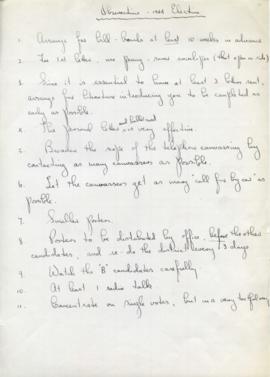 Observations - 1968 Election
1. Arrange for bill-boards at least 10 weeks in advance
2. For 1st letter, use penny, saver envelopes (that open on side)
3. Since it is essential to have at least 3 letters sent,
arrange for literature introducing you to be completed as
early as possible.
4. The personal letters and ballot card are very effective.
5. Broaden the scope of the telephone canvassing by
contacting as many canvassers as possible.
6. Let the canvassers get as many "call for by car" as
possible.
7. Smaller posters.
8. Posters to be distributed by office, before the other
candidates, and re-do the district every 3 days
9. Watch the "B" candidates carefully
10. At least 1 radio talk
11. Concentrate on single votes, but in a very tactful way